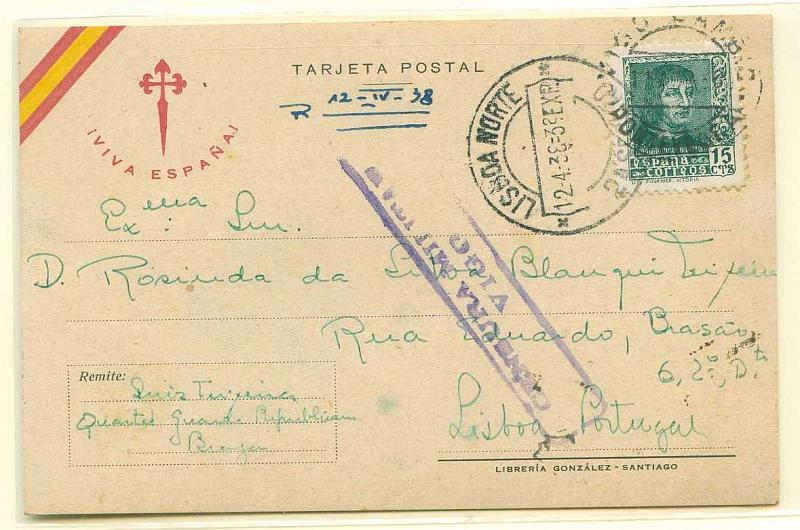 ¡VIVA ESPAÑA!
TARJETA POSTAL
R 12-IV-38
LISBOA NORTE
12.4.38
España 15
correos CTS
FOURNIER. VITORIA
CENSURA MILITAR
VIGO
Exma Snr.
D. Rosinda da Silva Blanqui Teixeira
Rua Eduardo, Brasão
6, 2º Dt.
Lisboa - Portugal
Remite: Luiz Teixeira
Quartel Guarda Republicana
Braga
LIBRERÍA GONZÁLEZ - SANTIAGO